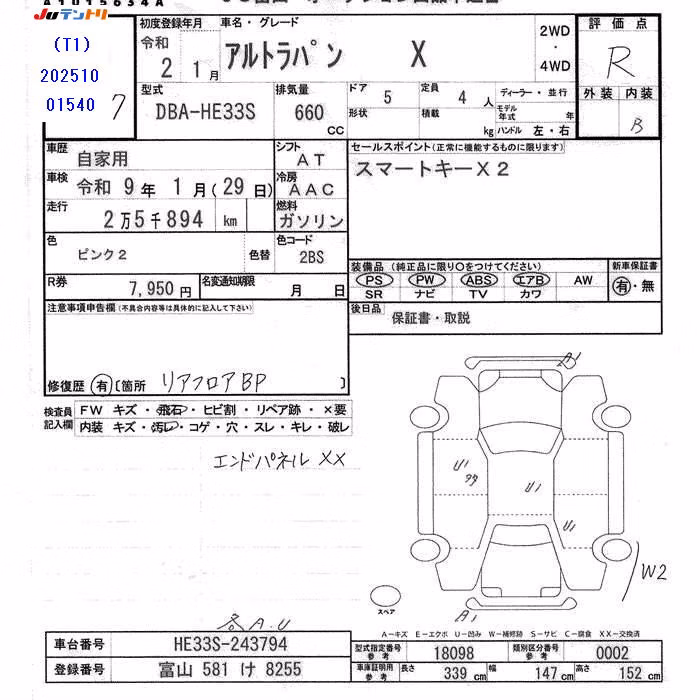 A1015634A
JUテントリ
(T1)
202510
01540 7
初度登録年月
令和
2 1月
車名・グレード
アルトラパン X
2WD
・
4WD
評価点
R
外装 内装
B
型式
DBA-HE33S
排気量
660
CC
ドア
5
形状
定員
4 人
積載
kg
ディーラー・並行
モデル年式 年
ハンドル 左・右
車歴
自家用
シフト
AT
車検
令和 9年 1月(29日)
冷房
AAC
走行
2万5千894 km
燃料
ガソリン
色
ピンク2
色替
色コード
2BS
R券
7,950円
名変通知期限
月 日
セールスポイント(正常に機能するものに限ります)
スマートキーX2
装備品(純正品に限り○をつけてください)
PS PW ABS エアB AW
SR ナビ TV カワ
新車保証書
有・無
後日品
保証書・取説
注意事項申告欄(不具合内容等は具体的に記入して下さい)
修復歴 有 [箇所 リアフロアBP ]
検査員記入欄
FW キズ・飛石・ヒビ割・リペア跡・×要
内装 キズ・汚レ・コゲ・穴・スレ・キレ・破レ
エンドパネルXX
A1
U1
U1
U1
W2
A1
スペア
各A.U
A-キズ E-エクボ U-凹み W-補修跡 S-サビ C-腐食 XX-交換済
車台番号
HE33S-243794
登録番号
富山 581 け 8255
型式指定番号
参考
18098
類別区分番号
参考
0002
車庫証明用
参考
長さ
339 cm
幅
147 cm
高さ
152 cm